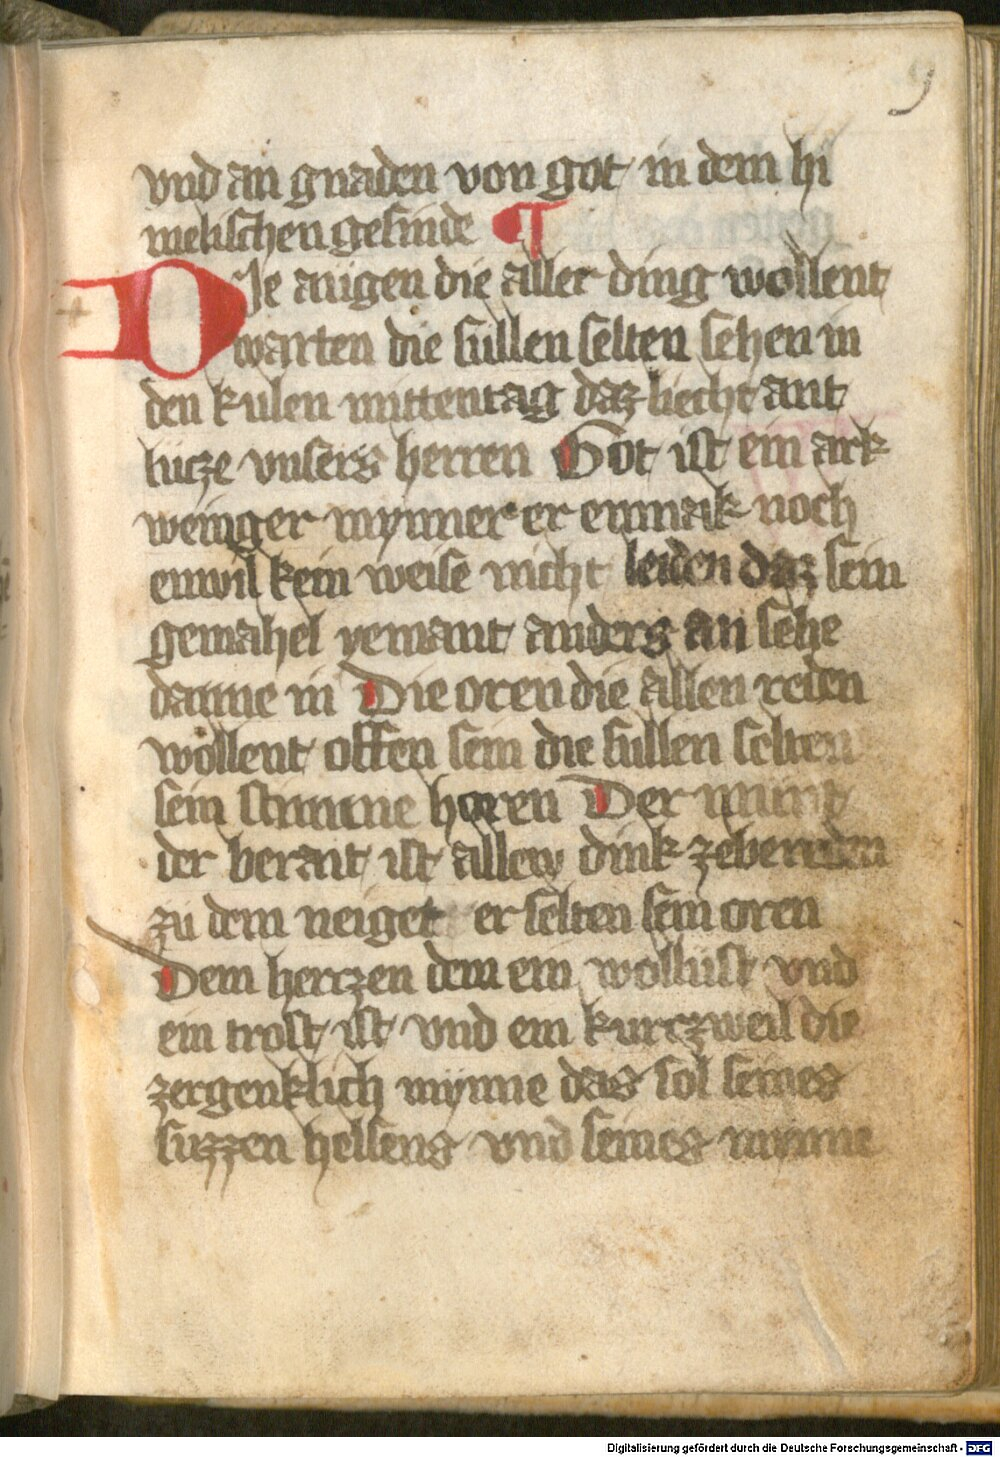 9
vnd an gnaden von got in dem hi
melischen gesinde ¶
DJe augen die aller ding wollent
warten die sullen selten sehen in
den kulen mittentag daz liecht ant
lucze vnsers herren Got ist ein ark
weniger mynner er enmak noch
enwil kein weise nicht leiden daz sein
gemahel yemant anders an sehe
danne in Die oren die allen reden
wollent offen sein die sullen selten
sein stimme horen Der munt
der berait ist allew dink zebereden
zu dem neiget er selten sein oren
Dem herczen dem ein wollust vnd
ein trost ist vnd ein kurczweil die
zergenklich mynne das sol seines
suzzen helsens vnd seines mynne
Digitalisierung gefördert durch die Deutsche Forschungsgemeinschaft - DFG